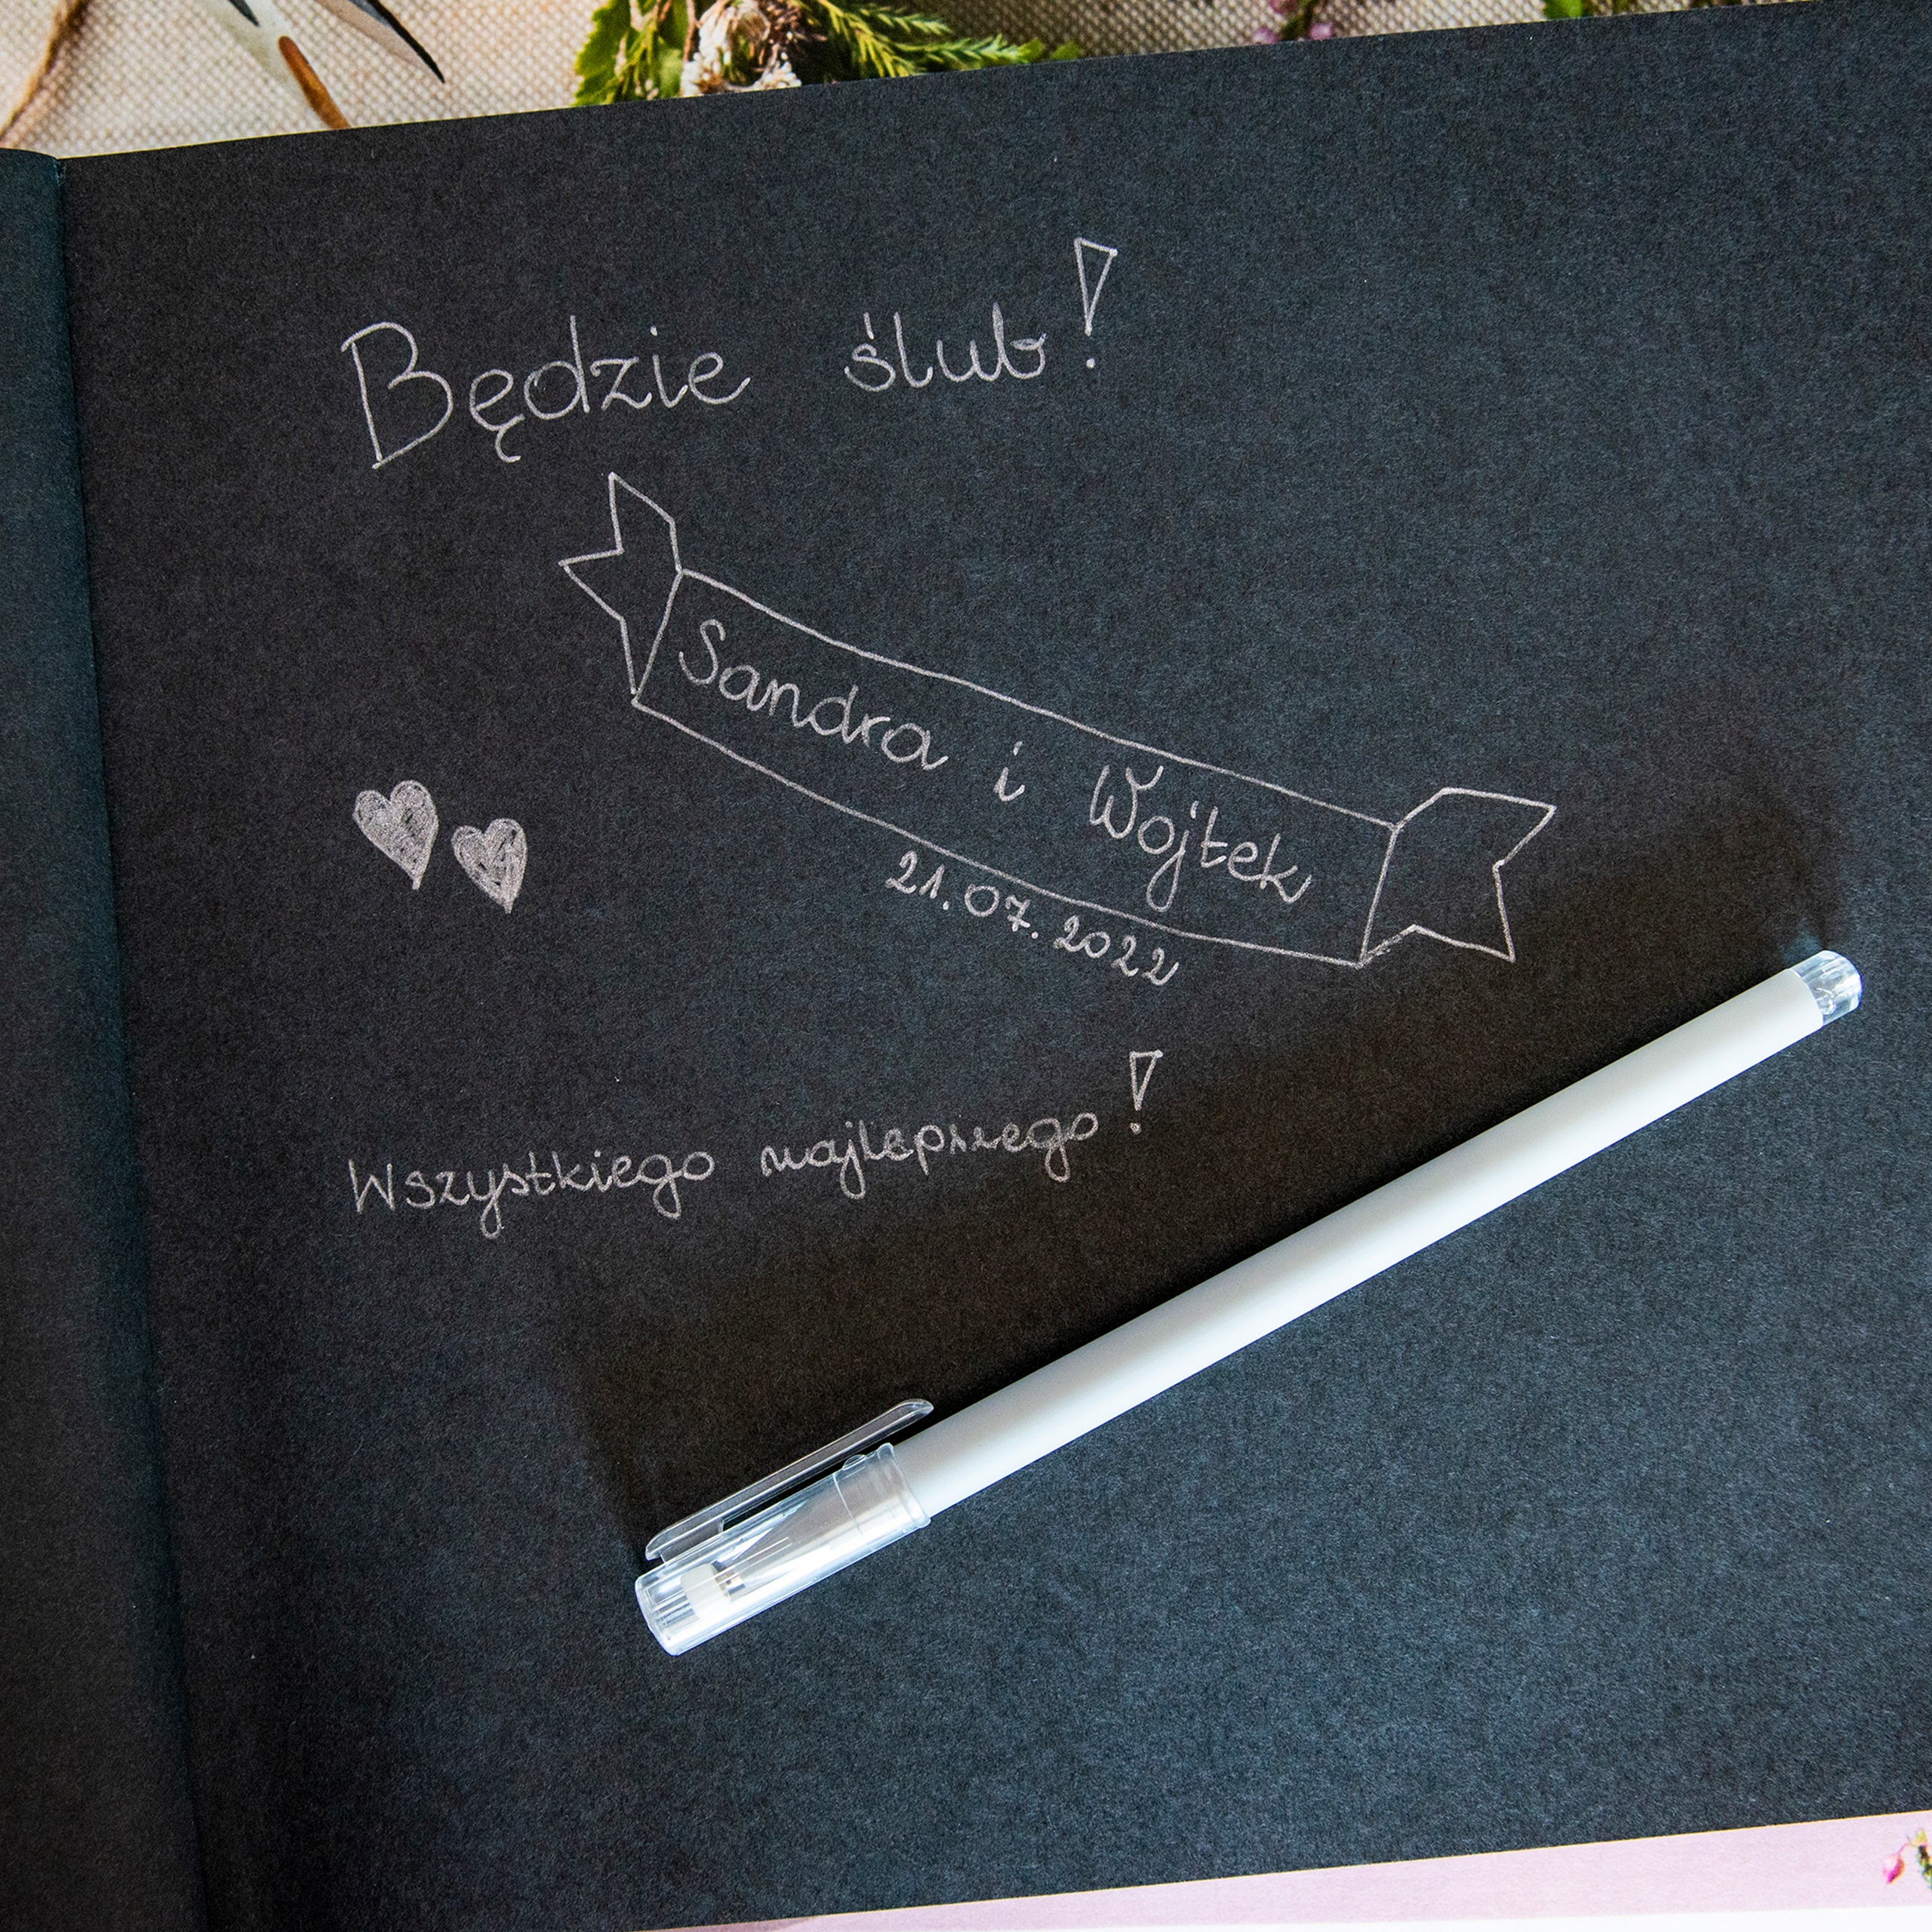 Będzie ślub!
Sandra i Wojtek
21.07.2022
Wszystkiego najlepszego!